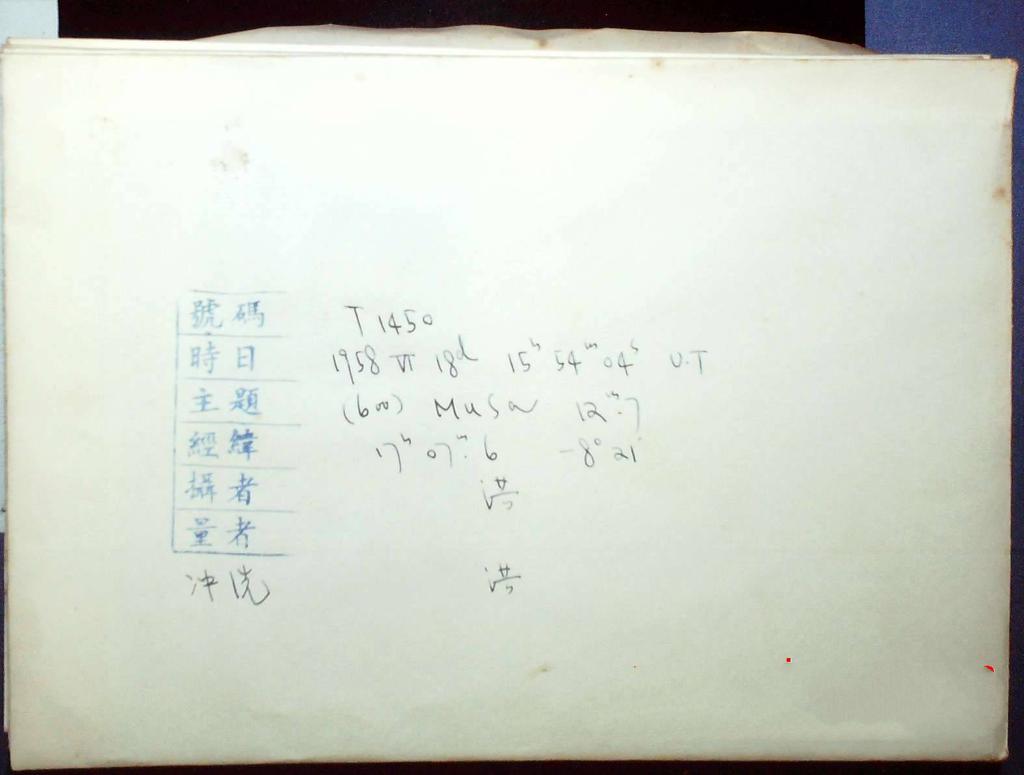 號碼 T 1450
時日 1958 VI 18d 15h 54m 04s U.T
主題 (600) Musa 12m.7
經緯 17h 07m.6 -8° 21'
攝者 洪
量者
冲洗 洪